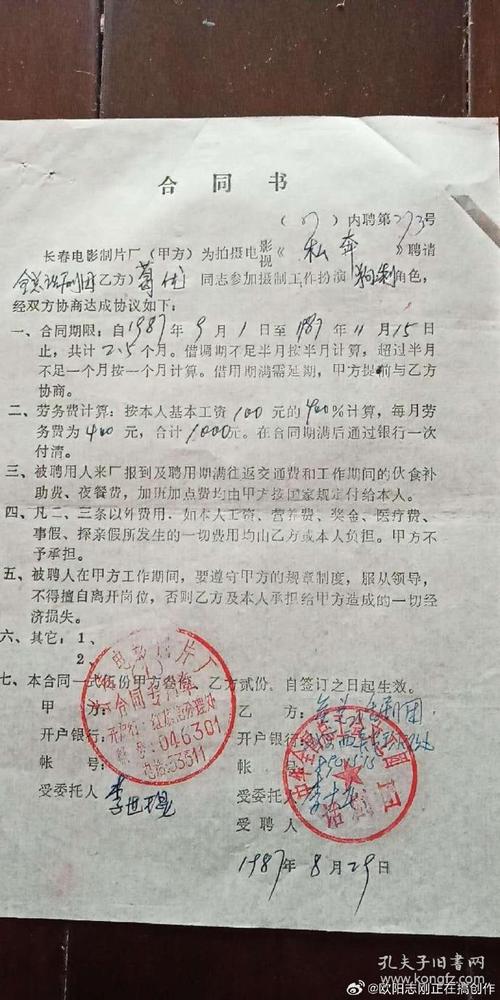 合同书
(87)内聘第273号
长春电影制片厂(甲方)为拍摄电影视《私奔》聘请
全总话剧团(乙方)葛优同志参加摄制工作扮演狗剩角色,
经双方协商达成协议如下:
一、合同期限:自1987年9月1日至1987年11月15日
止,共计2.5个月。借调期不足半月按半月计算,超过半月
不足一个月按一个月计算。借用期满需延期,甲方提前与乙方
协商。
二、劳务费计算:按本人基本工资100元的400%计算,每月劳
务费为400元,合计1000元。在合同期满后通过银行一次
付清。
三、被聘用人来厂报到及聘用期满往返交通费和工作期间的伙食补
助费、夜餐费,加班加点费均由甲方按国家规定付给本人。
四、凡二、三条以外费用,如本人工资、营养费、奖金、医疗费、
事假、探亲假所发生的一切费用均由乙方或本人负担。甲方不
予承担。
五、被聘人在甲方工作期间,要遵守甲方的规章制度,服从领导,
不得擅自离开岗位,否则乙方及本人承担给甲方造成的一切经
济损失。
六、其它:1、
2、
七、本合同一式伍份甲方叁份,乙方贰份。自签订之日起生效。
甲方:
乙方:全总话剧团
开户银行:
开户银行:
帐号:
帐号:
受委托人
受委托人
李世
受聘人
电影制片厂
合同专用章
046301
电话:53511
话剧团
1987年8月29日
孔夫子旧书网
@欧阳志刚正在搞创作